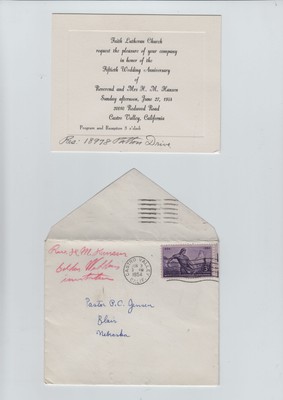 Faith Lutheran Church
request the pleasure of your company
in honor of the
Fiftieth Wedding Anniversary
of
Reverend and Mrs H. M. Hansen
Sunday afternoon, June 27, 1954
20080 Redwood Road
Castro Valley, California
Program and Reception 3 o'clock
Res: 18978 Patton Drive
Rev H M Hansen
Golden Wedding
invitation
CASTRO VALLEY
PM
1954
CALIF.
Pastor P.C. Jensen
Blair
Nebraska